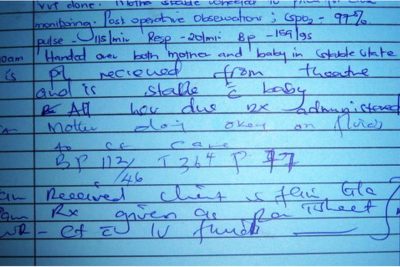 monitoring. Post operative observations; SPO2 - 97%
pulse - 115/min Resp - 20/min BP - 159/95
Handed over both mother and baby in stable state
Pt recieved from theatre
and is stable c baby
All her due Rx administered
Mother doing okey on fluids
to ct care
BP 112/46 T 364 P 77
Received client in fair
Rx given as per Tsheet
ct c IV fluids